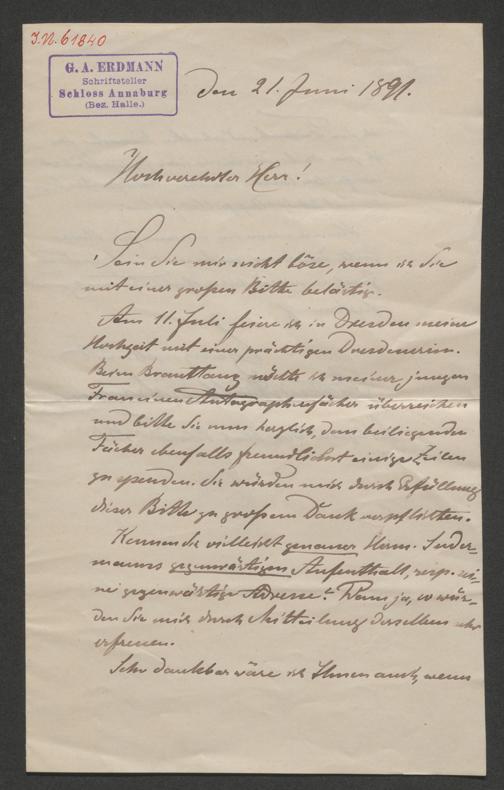 J.N. 61840
G. A. ERDMANN
Schriftsteller
Schloss Annaburg
(Bez. Halle.)
Den 21. Juni 1891.
Hochverehrter Herr!
Sein Sie mir nicht böse, wenn ich Sie
mit einer großen Bitte belästige.
Am 11. Juli feiere ich in Dresden meine
Hochzeit mit einer prächtigen Dresdenerin.
Beim Brauttanz möchte ich meiner jungen
Frau einen Autographenfächer überreichen
und bitte Sie nun herzlich, dem beiliegenden
Fächer ebenfalls freundlichst einige Zeilen
zu spenden. Sie würden mich durch Erfüllung
dieser Bitte zu großem Dank verpflichten.
Kennen Sie vielleicht genauer Herm. Suder-
manns gegenwärtigen Aufenthalt, resp. sei-
ne gegenwärtige Adresse? Wenn ja, so wür-
den Sie mich durch Mitteilung derselben sehr
erfreuen.
Sehr dankbar wäre ich Ihnen auch, wenn